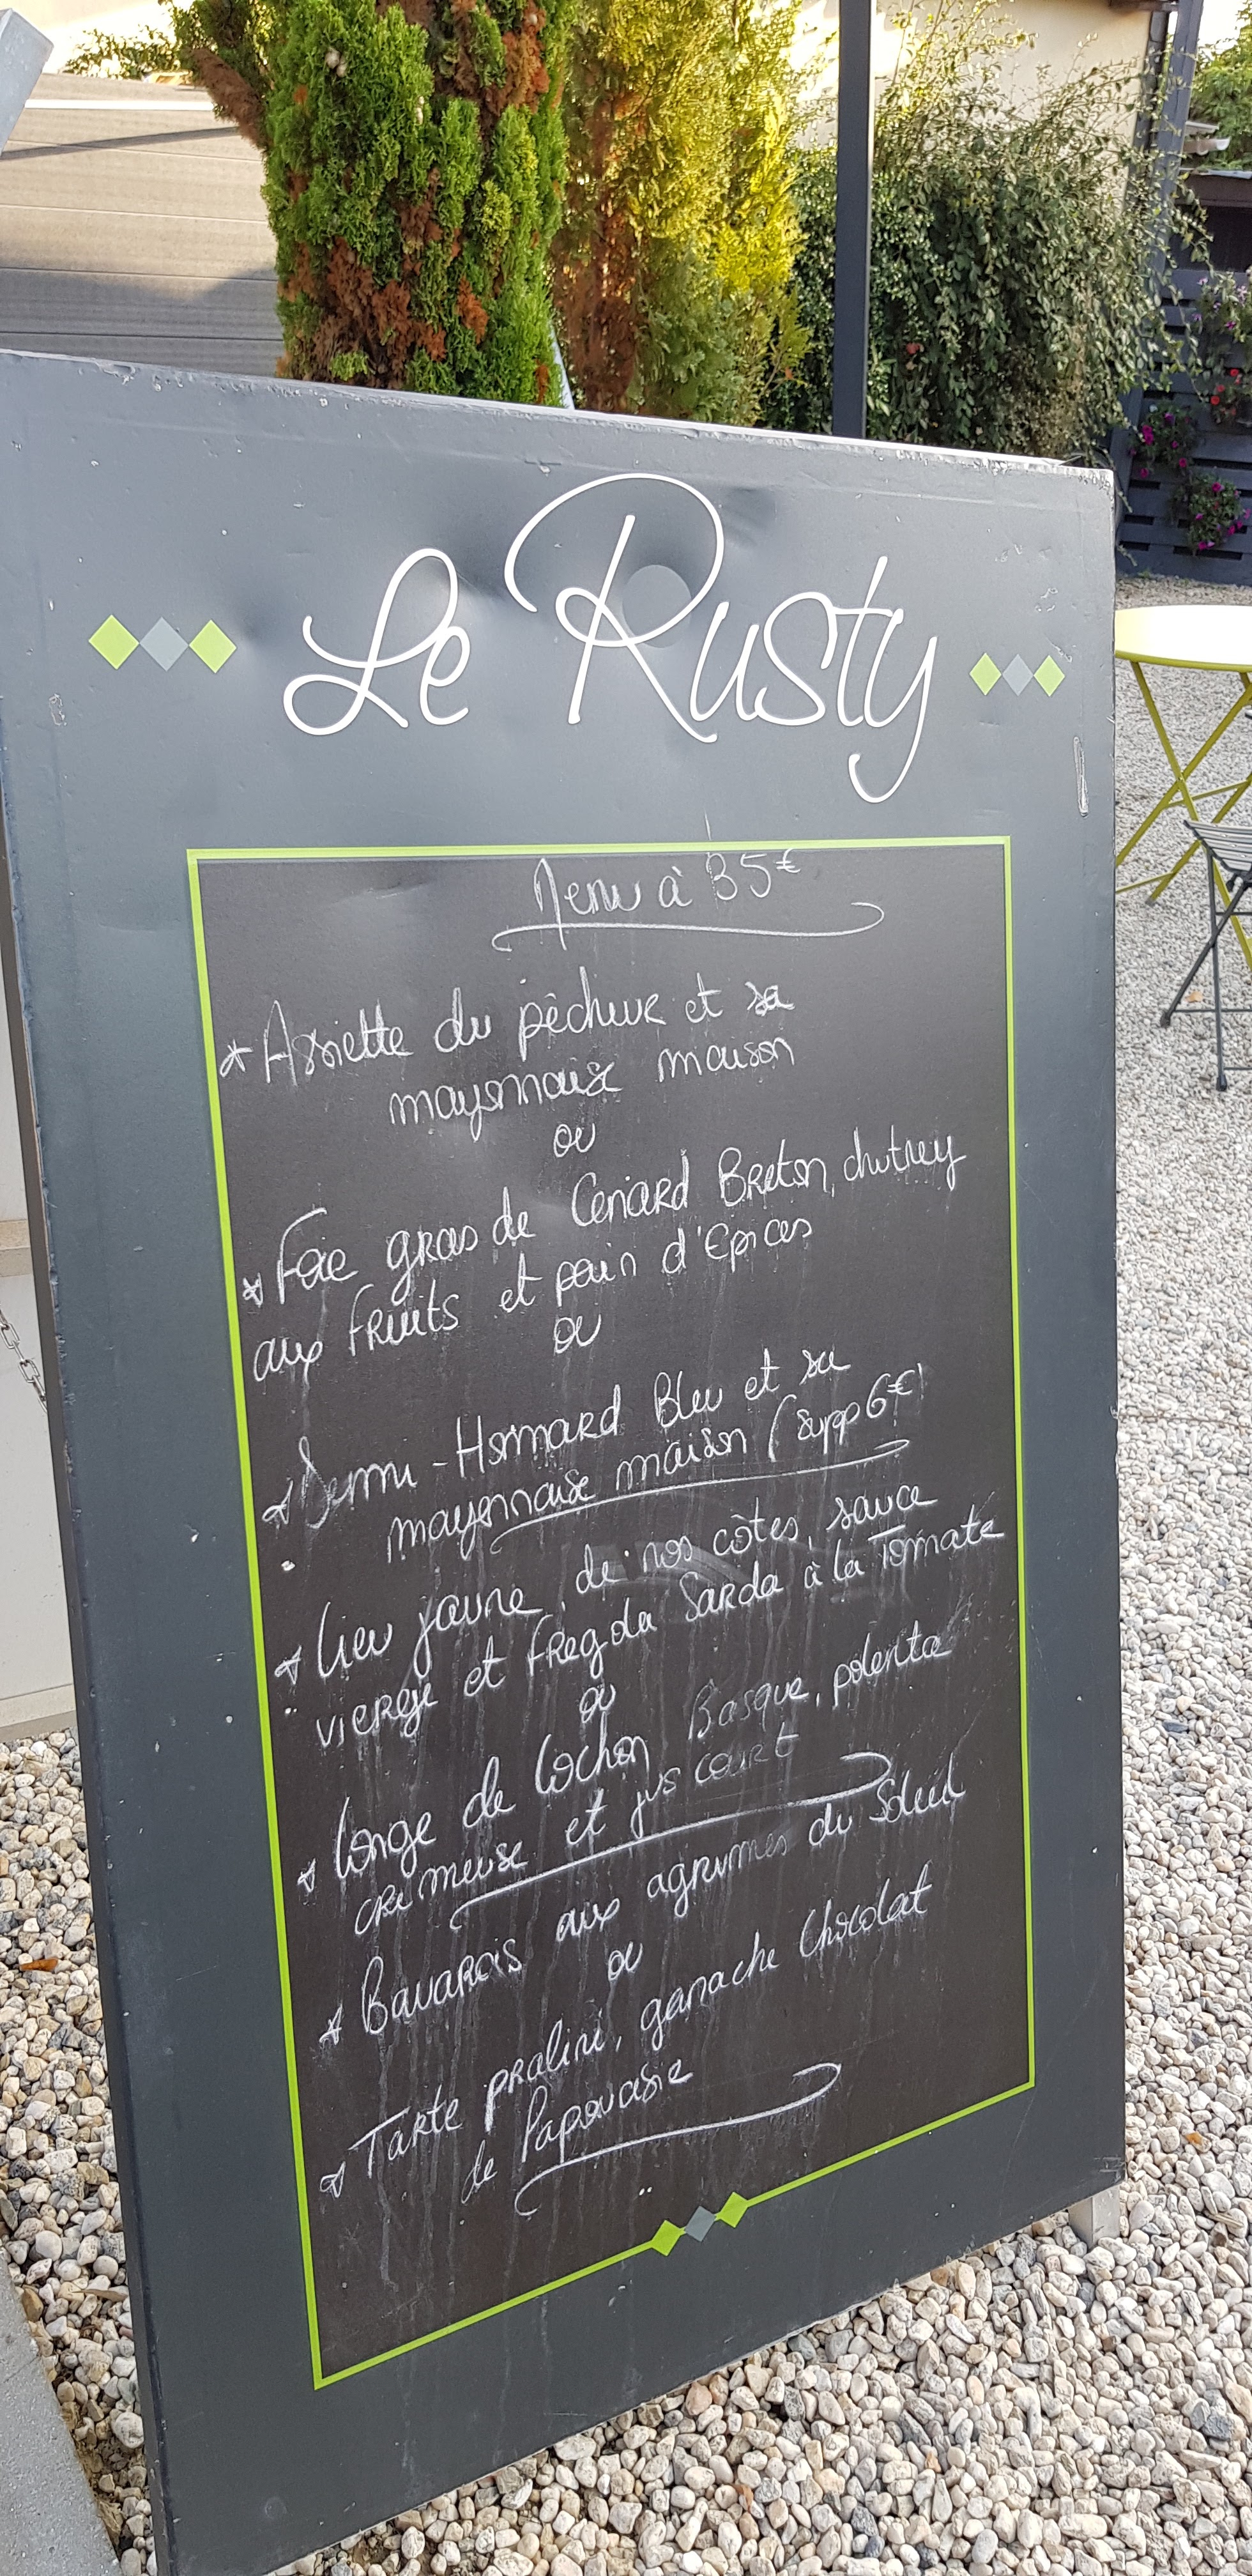 Le Rusty
Menu à 35€
* Assiette du pêcheur et sa
mayonnaise maison
ou
* Foie gras de Canard Breton, chutney
aux fruits et pain d'Epices
ou
* Demi-Homard Bleu et sa
mayonnaise maison (supp 6€)
* Lieu jaune de nos côtes, sauce
vierge et Fregola Sarda à la Tomate
ou
* Longe de Cochon Basque, polenta
crémeuse et jus court
* Bavarois aux agrumes du Soleil
ou
* Tarte praliné, ganache Chocolat
de Papouasie